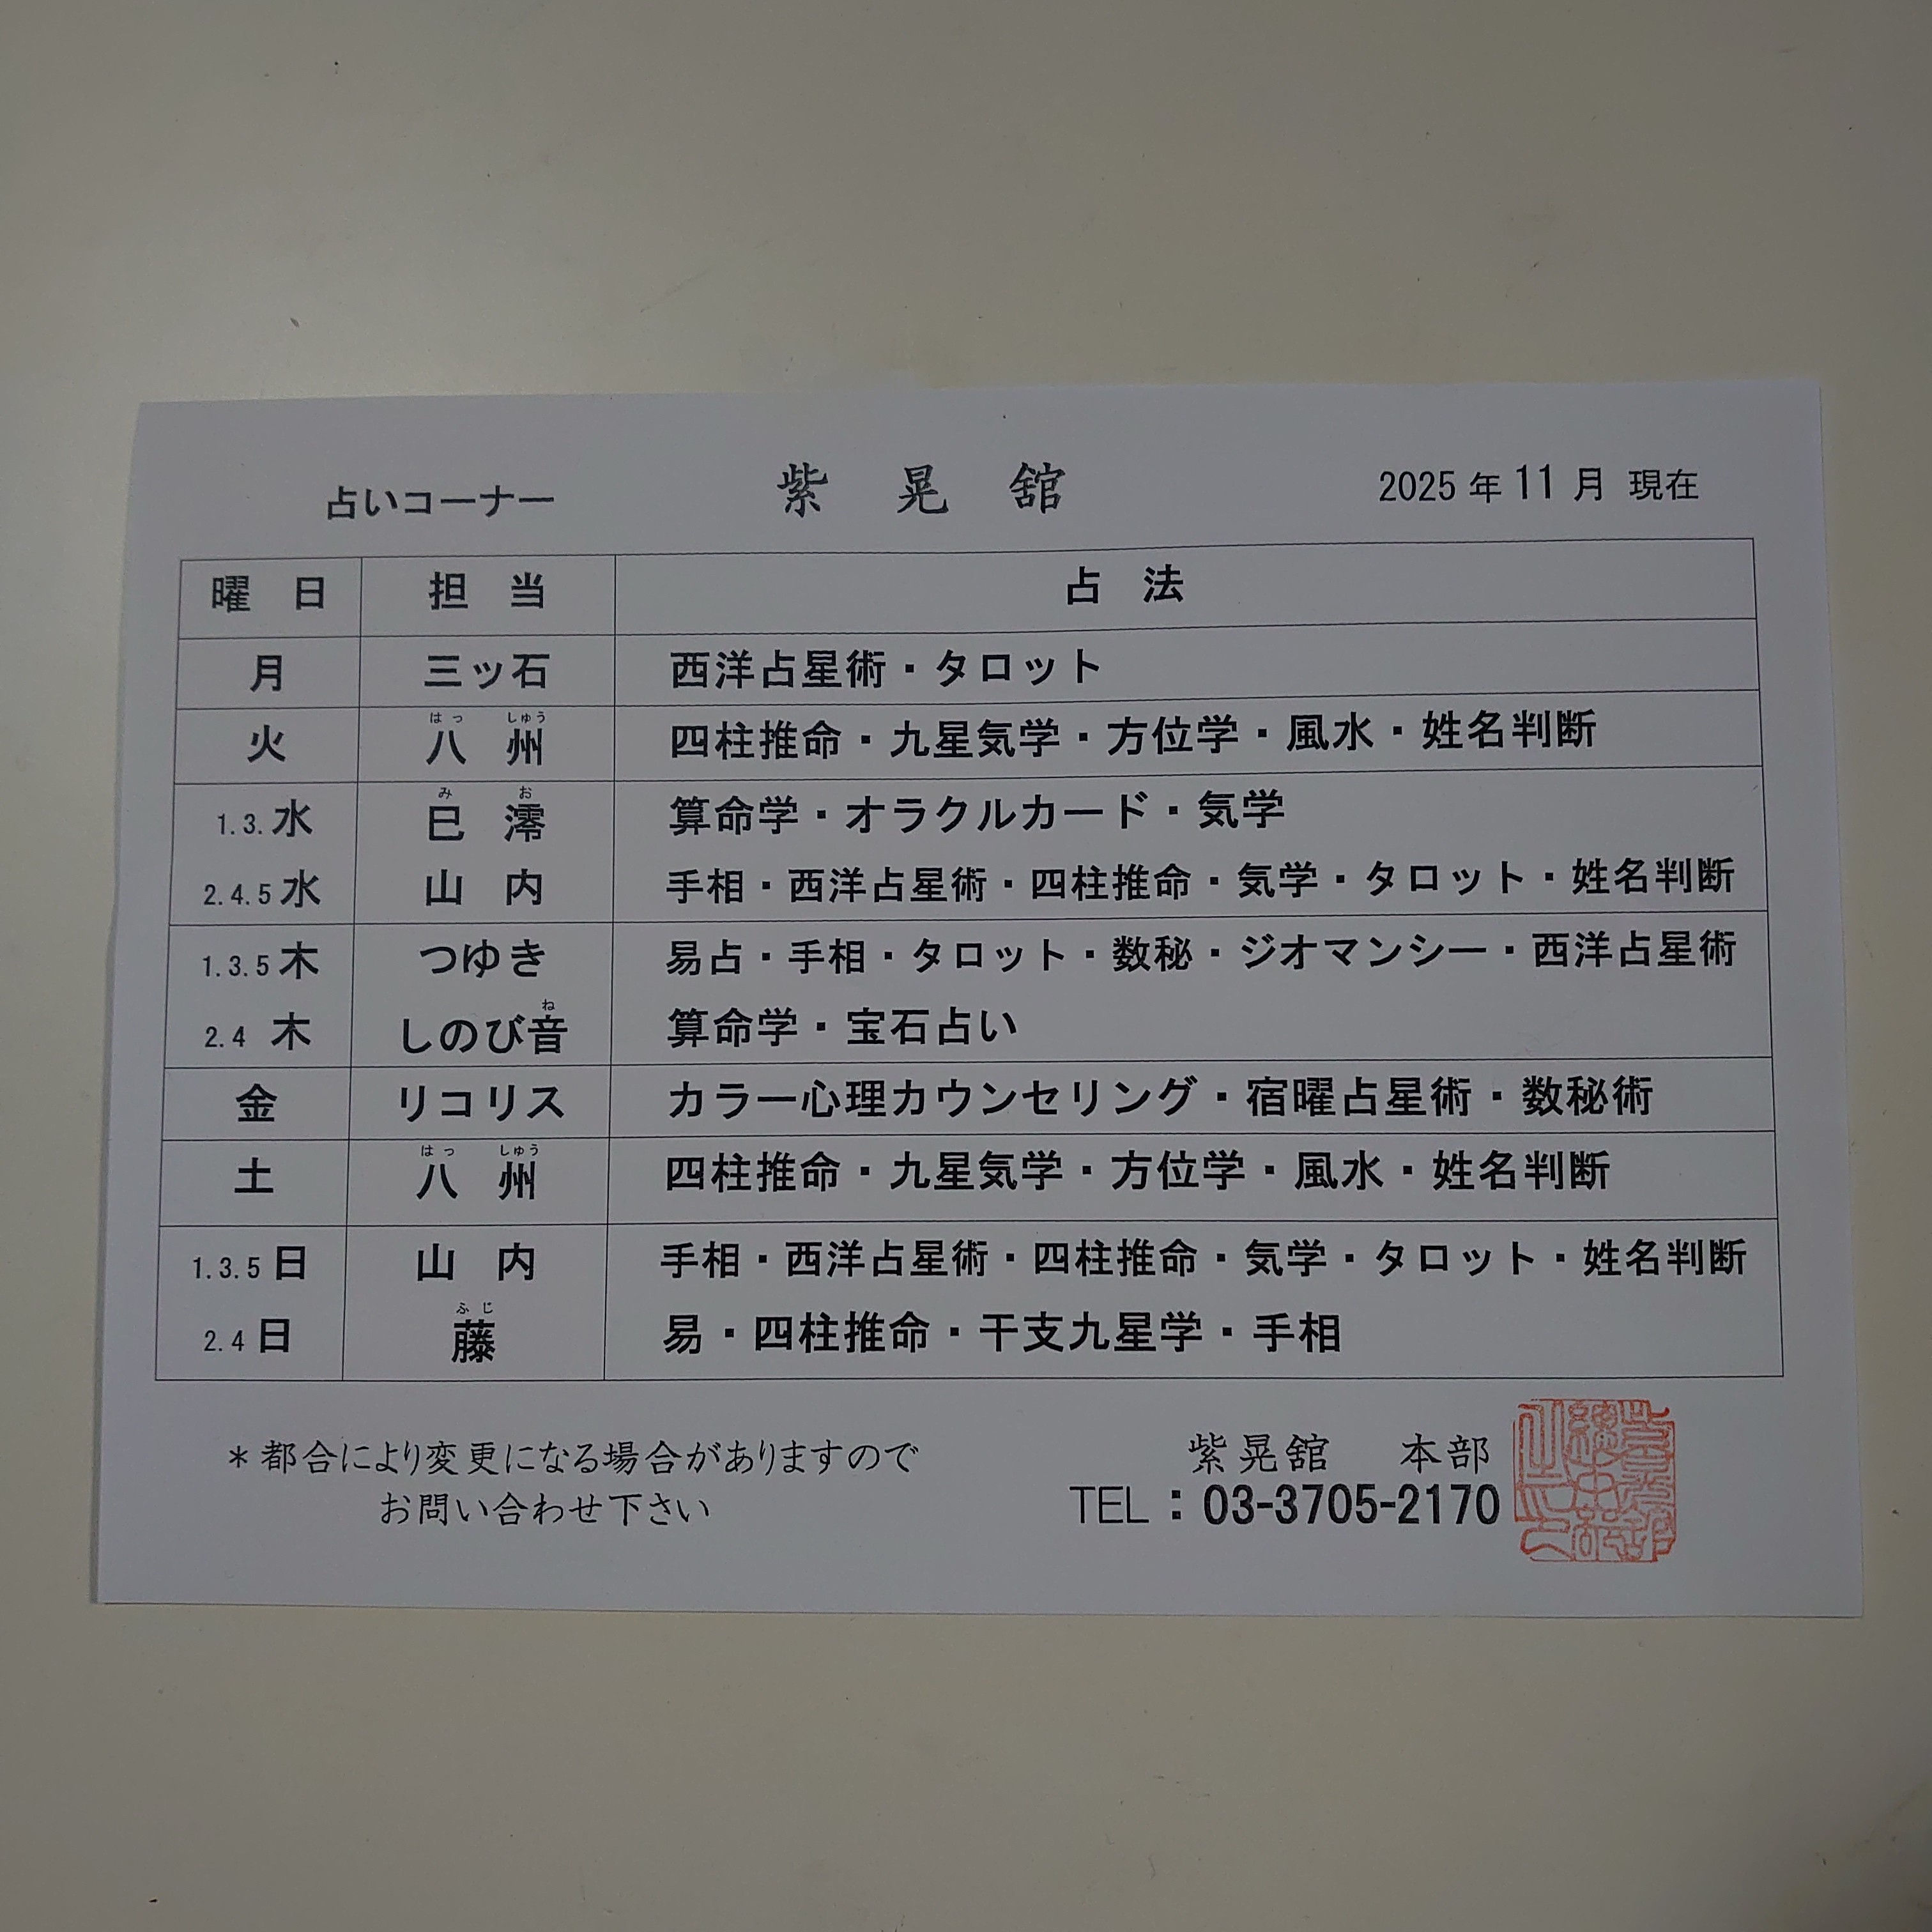 占いコーナー 紫晃舘 2025年11月 現在
曜日 担当 占法
月 三ッ石 西洋占星術・タロット
はっ しゅう
火 八州 四柱推命・九星気学・方位学・風水・姓名判断
み お
1.3.水 巳澪 算命学・オラクルカード・気学
2.4.5水 山内 手相・西洋占星術・四柱推命・気学・タロット・姓名判断
1.3.5木 つゆき 易占・手相・タロット・数秘・ジオマンシー・西洋占星術
ね
2.4 木 しのび音 算命学・宝石占い
金 リコリス カラー心理カウンセリング・宿曜占星術・数秘術
はっ しゅう
土 八州 四柱推命・九星気学・方位学・風水・姓名判断
1.3.5日 山内 手相・西洋占星術・四柱推命・気学・タロット・姓名判断
ふじ
2.4日 藤 易・四柱推命・干支九星学・手相
＊都合により変更になる場合がありますので
お問い合わせ下さい
紫晃舘 本部
TEL：03-3705-2170